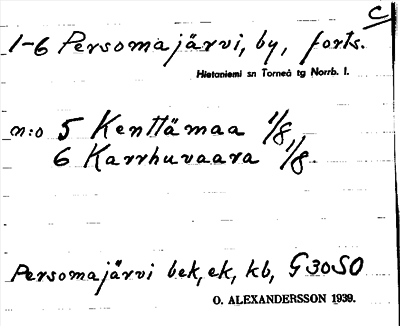 C
1-6 Persomajärvi, by, forts.
Hietaniemi sn Torneå tg Norrb. l.
n:o 5 Kenttämaa 1/8
6 Karrhuvaara 1/8.
Persomajärvi bek, ek, kb, G30SO
O. ALEXANDERSSON 1939.